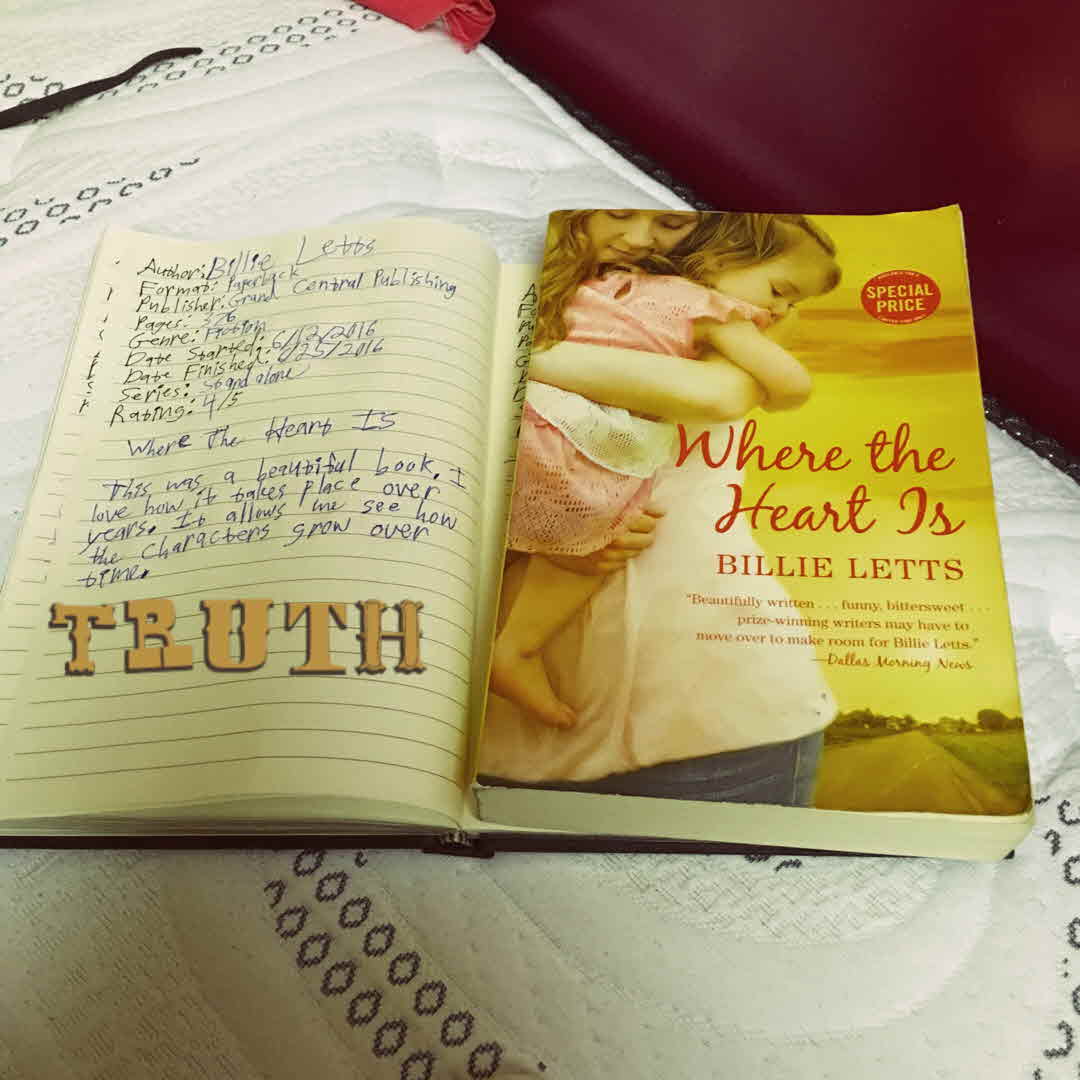 Author: Billie Letts
Format: Paperback
Publisher: Grand Central Publishing
Pages:
Genre: Fiction
Date Started: 6/12/2016
Date Finished: 6/25/2016
Series: Stand alone
Rating: 4/5
Where The Heart Is
This was a beautiful book. I
love how it takes place over
years. It allows me see how
the characters grow over
time.
TRUTH
SPECIAL
PRICE
Where the
Heart Is
BILLIE LETTS
"Beautifully written . . . funny, bittersweet . . .
prize-winning writers may have to
move over to make room for Billie Letts."
—Dallas Morning News